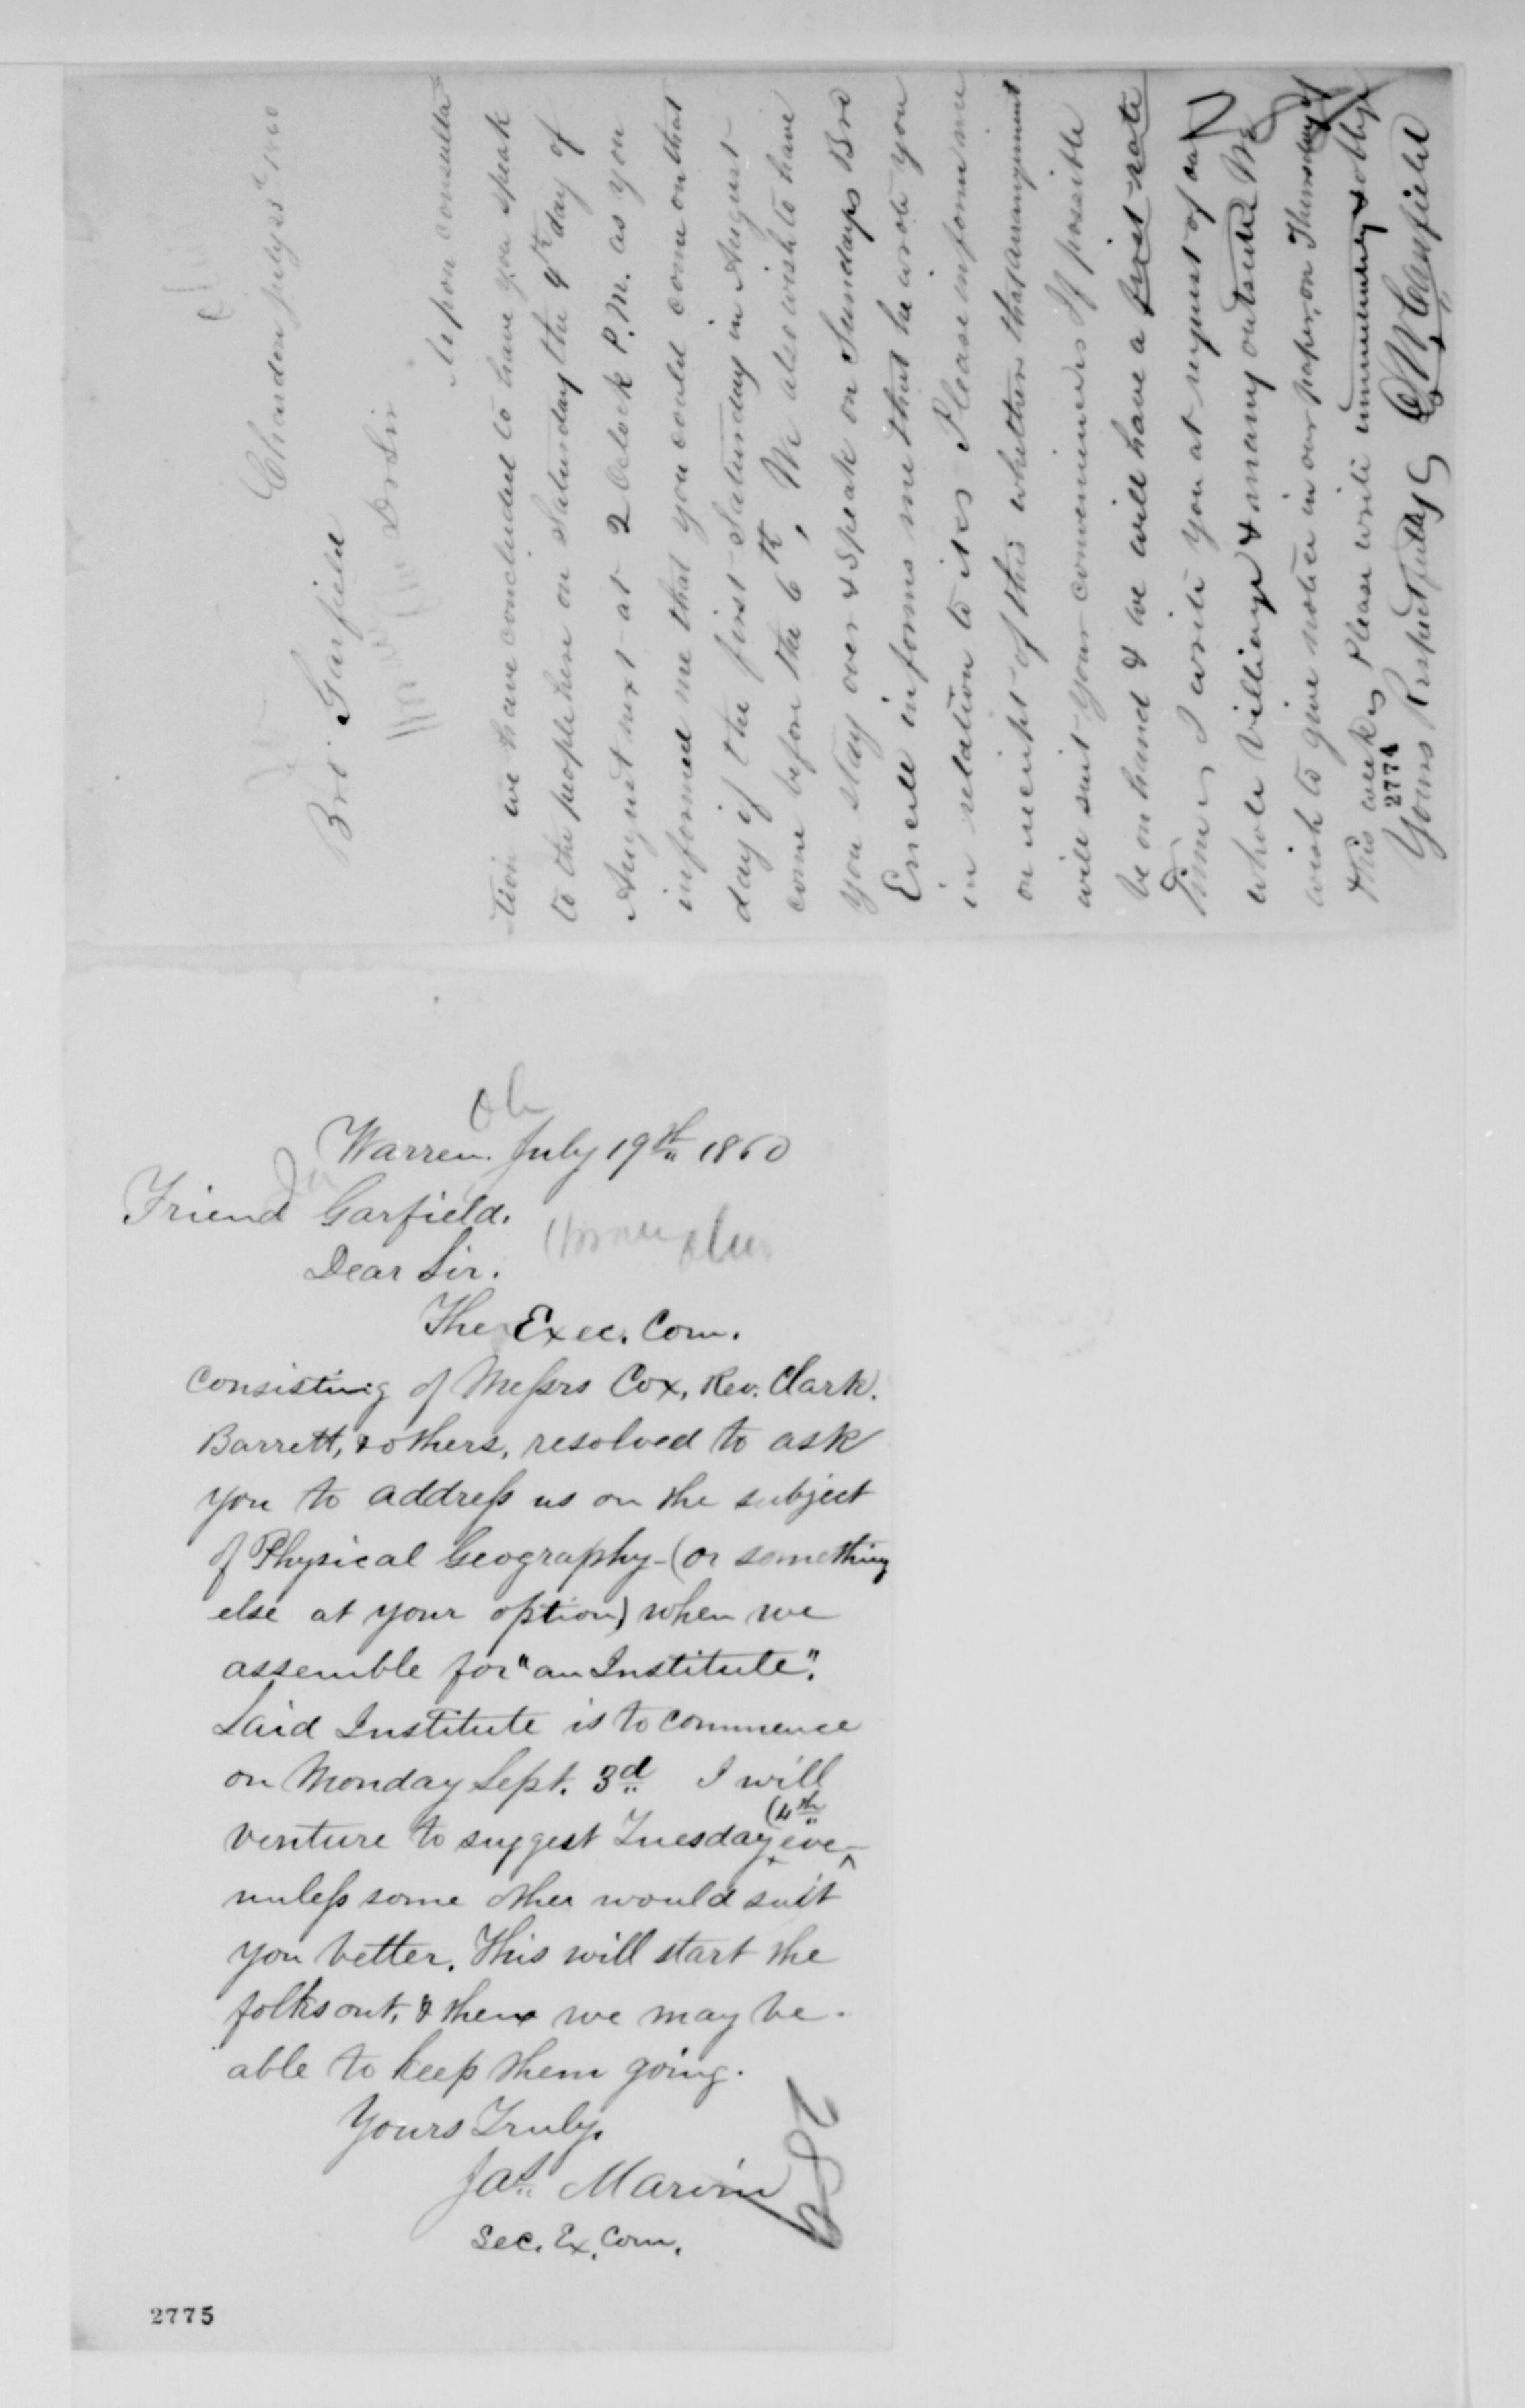 Chardon July 23d 1860
Bro. Garfield
Dr Sir
Upon consulta
tion we have concluded to have you speak
to the people here on Saturday the 4th day of
August next at 2 Oclock P.M. as you
informed me that you could come on that
day if the first Saturday in August
come before the 6th, We also wish to have
you stay over & speak on Sunday Bro
informs me that he wrote you
in relation to it Please inform me
on receipt of this whether that arrangement
will suit your convenience If possible
be on hand & we will have a first rate
Time I write you at request of our
whole Village & many outside We
wish to give notice in our paper, on Thursday of
this week Please write immediately & oblige
2774
Yours Respectfully
Canfield
Oh
Warren. July 19th 1860
Friend Garfield.
Dear Sir.
The Exec. Com.
consisting of Messrs Cox, Rev. Clark.
Barrett, & others, resolved to ask
you to address us on the subject
of Physical Geography - (or something
else at your option) when we
assemble for "an Institute".
Said Institute is to commence
on Monday Sept. 3d I will
venture to suggest Tuesday eve (4th
unless some other would suit
you better. This will start the
folks out, & then we may be
able to keep them going.
Yours Truly,
Jas Marvin
Sec. Ex. Com.
2775